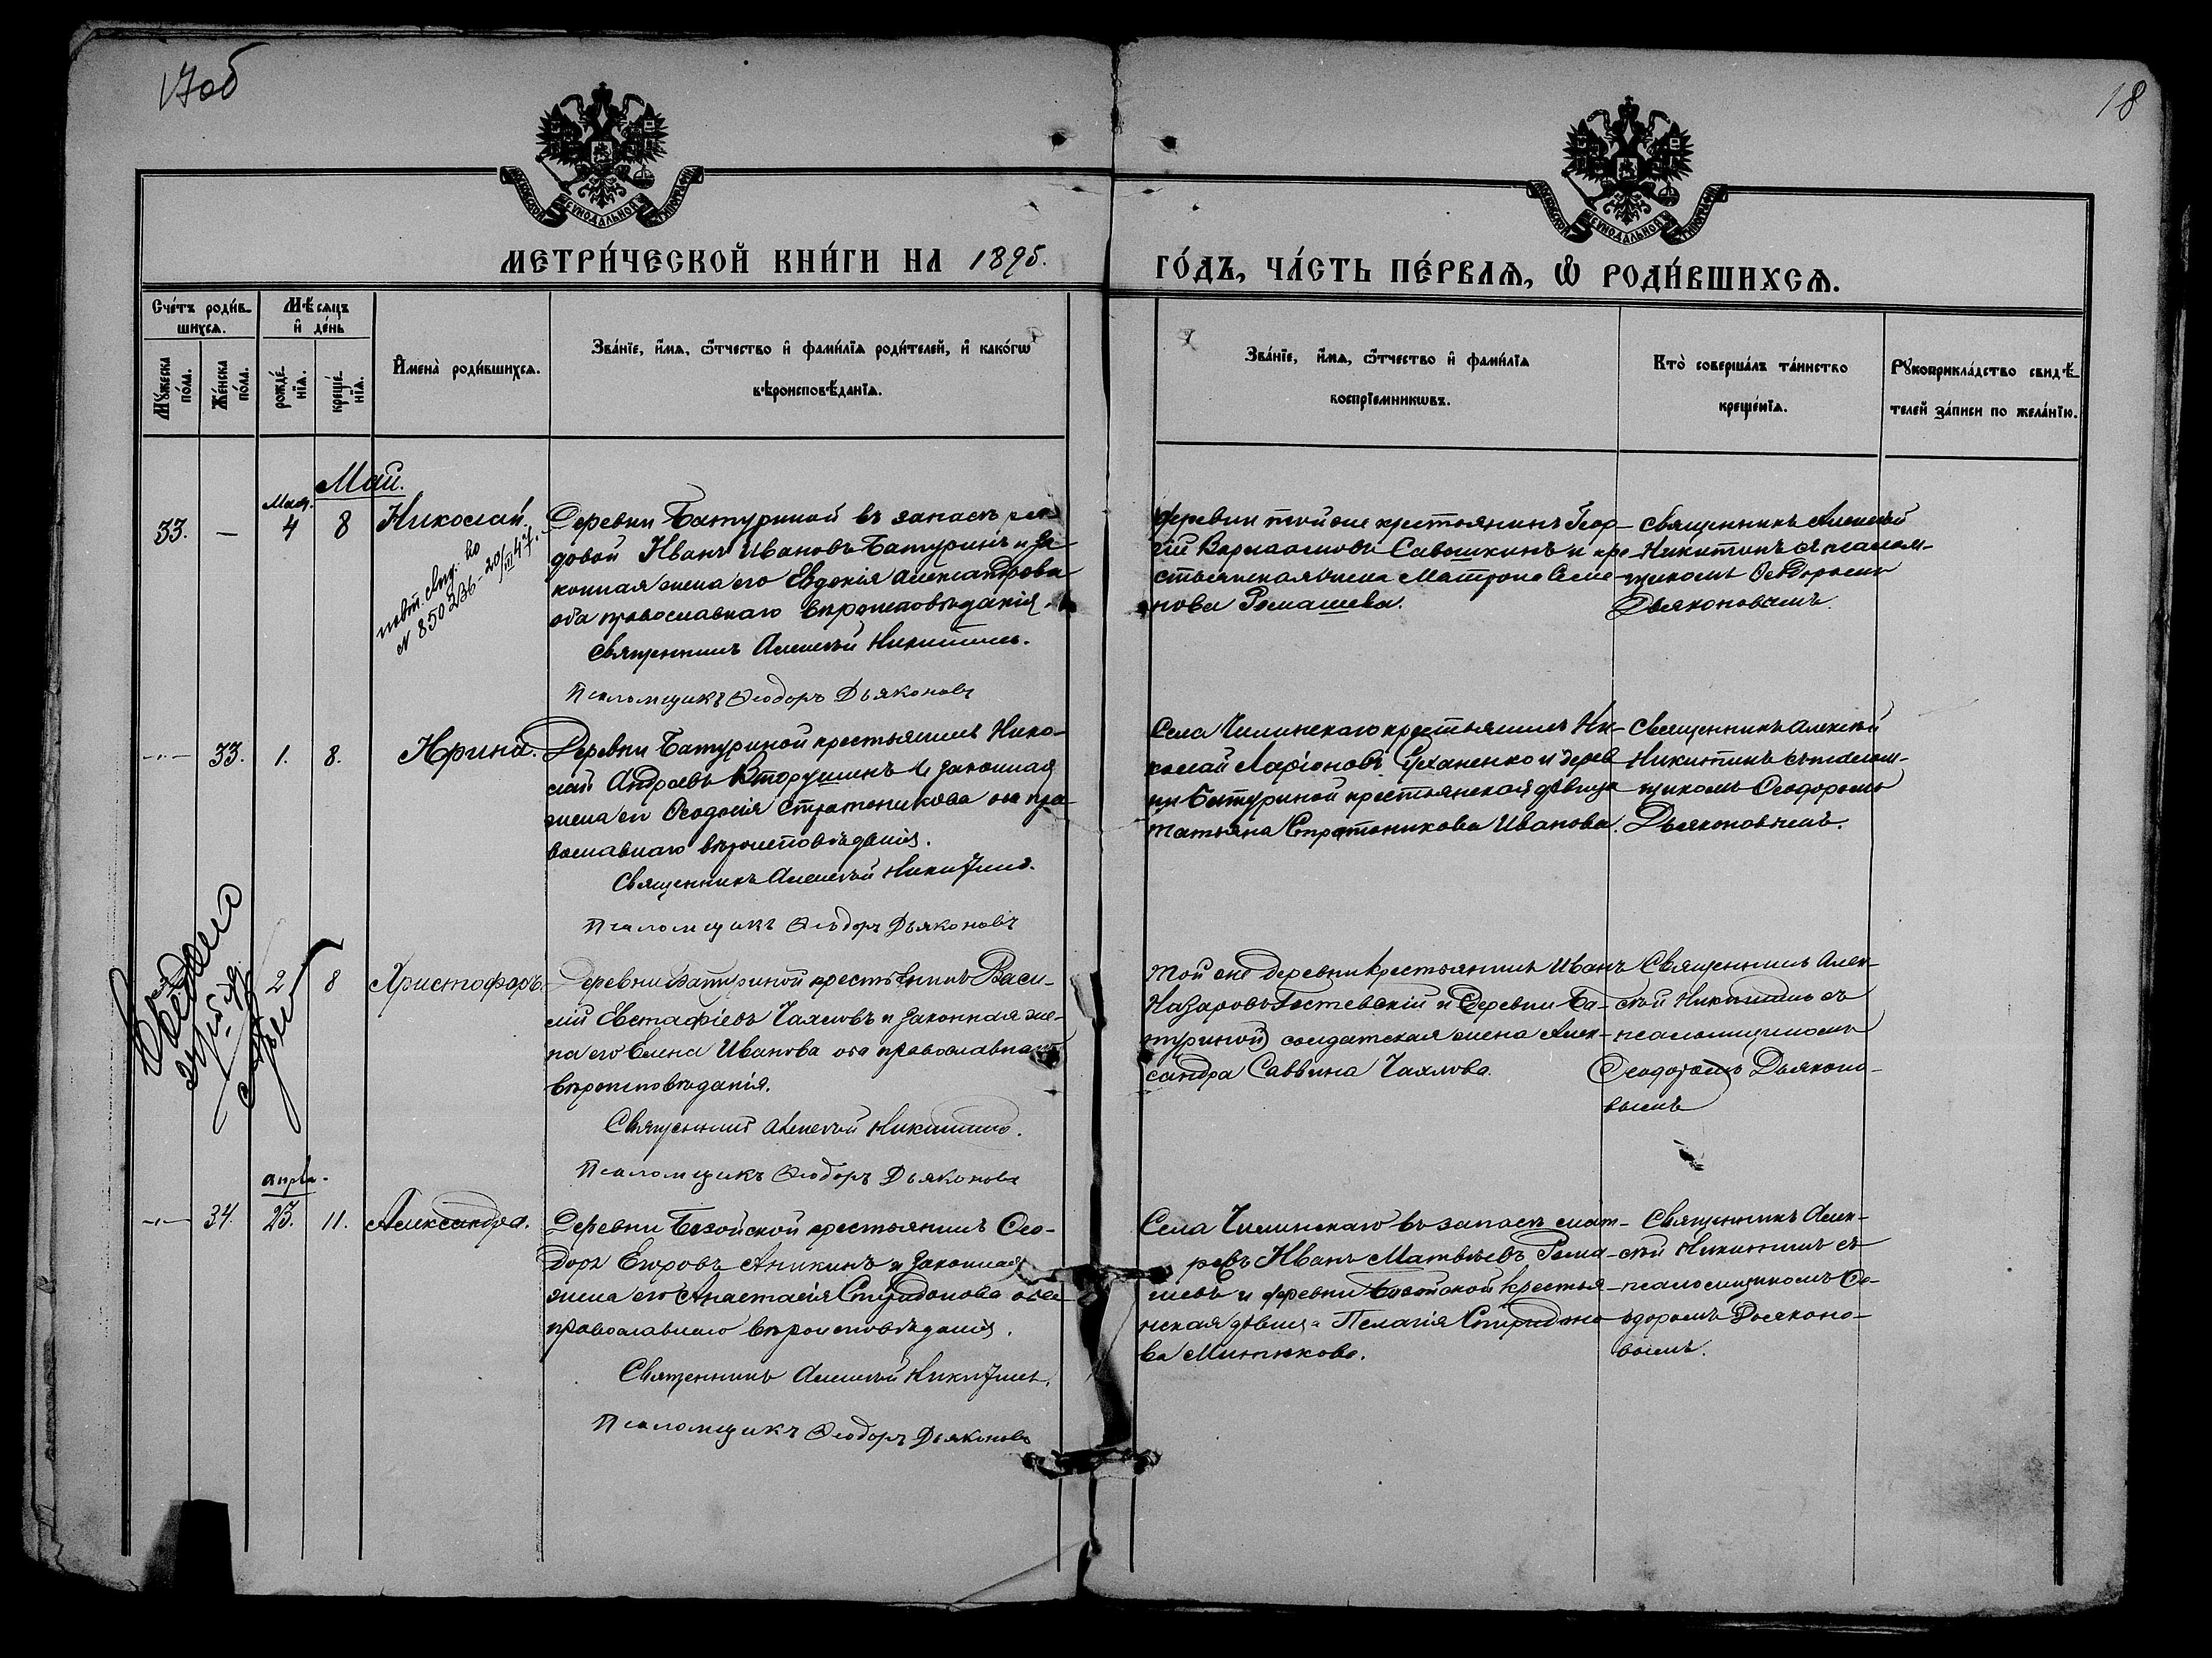 17об
18
МОСКОВСКОЙ СѴНОДАЛЬНОЙ ТИПОГРАФІИ
МОСКОВСКОЙ СѴНОДАЛЬНОЙ ТИПОГРАФІИ
МЕТРИ́ЧЕСКОЙ КНИ́ГИ НА 1895.
ГО́ДЪ, ЧА́СТЬ ПЕ́РВАѦ, Ѽ РОДИ́ВШИХСѦ.
Сче́тъ роди́в-
шихсѧ.
Мѣ́сѧцъ
и҆ де́нь
Мꙋ́жеска
по́ла.
Же́нска
по́ла.
рожде́-
нїѧ.
креще́-
нїѧ.
И҆мена̀ роди́вшихсѧ.
Зва́нїе, и҆́мѧ, ѻ҆́тчество и҆ фами́лїѧ роди́телей, и҆ како́гѡ
вѣроисповѣ́данїѧ.
Зва́нїе, и҆́мѧ, ѻ҆́тчество и҆ фами́лїѧ
воспрїе́мникѡвъ.
Кто̀ соверша́лъ та́инство
креще́нїѧ.
Рꙋкоприкла́дство свидѣ́-
телей за́писи по жела́нїю.
Май.
Мая.
33. — 4 8 Николай.
повт. свид. во
N 850236 - 20/III 47.
Деревни Батуриной въ запасѣ ря-
довой Иванъ Ивановъ Батуринъ и за
конная жена его Евдокія Александрова
оба православнаго вѣроисповѣданія.
Священникъ Алексѣй Никитинъ.
Псаломщикъ Ѳеодоръ Дьяконовъ
Деревни той же крестьянинъ Геор-
гій Варлаамовъ Савошкинъ и кре-
стьянская жена Матрона Семе-
нова Ромашева.
Священникъ Алексѣй
Никитинъ съ псалом-
щикомъ Ѳеодоромъ
Дьяконовымъ.
— 33. 1. 8. Ирина.
Деревни Батуриной крестьянинъ Нико-
лай Андреевъ Вторушинъ и законная
жена его Ѳеодосія Стратоникова оба пра
вославнаго вѣроисповѣданія.
Священникъ Алексѣй Никитинъ.
Псаломщикъ Ѳеодоръ Дьяконовъ
Села Чилинскаго крестьянинъ Ни-
колай Ларіоновъ Уханенко и дерев
ни Батуриной крестьянская дѣвица
Татьяна Стратоникова Иванова.
Священникъ Алексѣй
Никитинъ съ псалом-
щикомъ Ѳеодоромъ
Дьяконовымъ.
2 8 Христофоръ.
Деревни Батуриной крестьянинъ Васи-
лій Евстафіевъ Чаловъ и законная же-
на его Елена Иванова оба православнаго
вѣроисповѣданія.
Священникъ Алексѣй Никитинъ.
Псаломщикъ Ѳеодоръ Дьяконовъ
Той же деревни крестьянинъ Иванъ
Назаровъ Гостевскій и деревни Ба-
туриной солдатская жена Алек-
сандра Саввина Чаялова.
Священникъ Алек-
сѣй Никитинъ съ
псаломщикомъ
Ѳеодоромъ Дьяконо-
вымъ
апрѣл.
— 34. 23. 11. Александра.
Деревни Базойской крестьянинъ Ѳео-
доръ Егоровъ Аникинъ и законная
жена его Анастасія Спиридонова оба
православнаго вѣроисповѣданія.
Священникъ Алексѣй Никитинъ.
Псаломщикъ Ѳеодоръ Дьяконовъ
Села Чилинскаго въ запасѣ мат-
росъ Иванъ Матвѣевъ Рома-
шевъ и деревни Базойской крестья-
нская дѣвица Пелагія Спиридоно
ва Митюкова.
Священникъ Алек-
сѣй Никитинъ съ
псаломщикомъ Ѳе-
одоромъ Дьяконо-
вымъ.